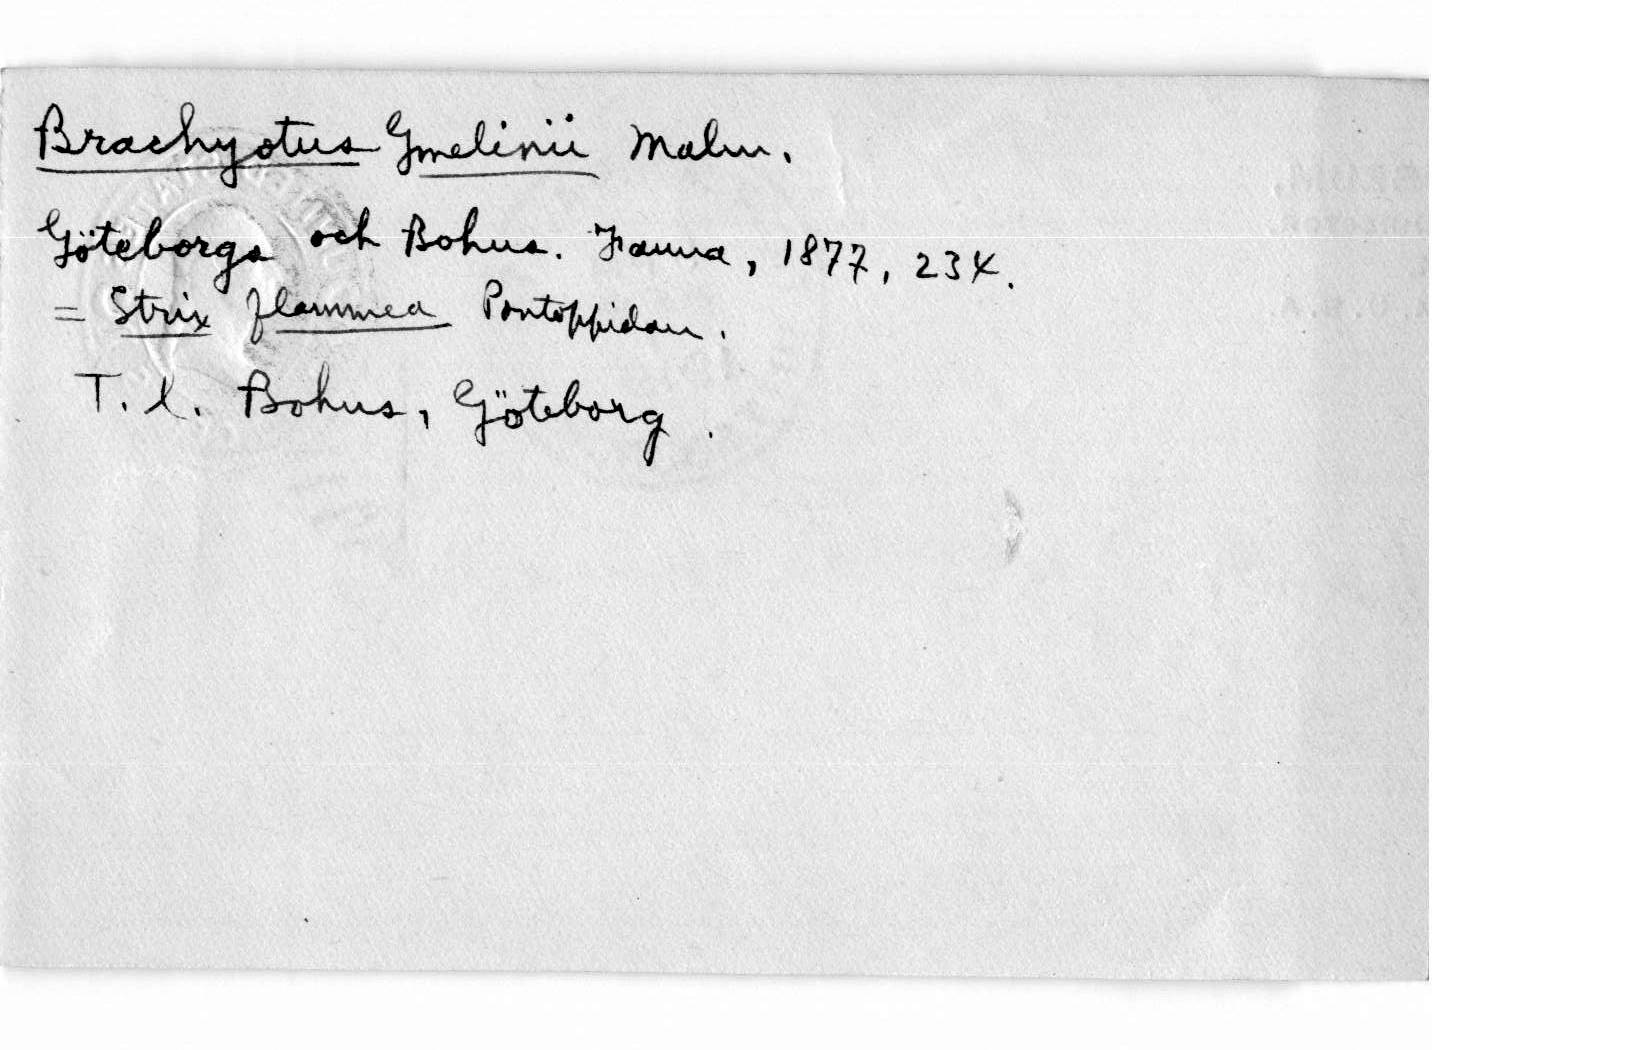 Brachyotus Gmelinii Malm.
Göteborgs och Bohus. Fauna, 1877, 234.
= Strix flammea Pontoppidan.
T. l. Bohus, Göteborg.